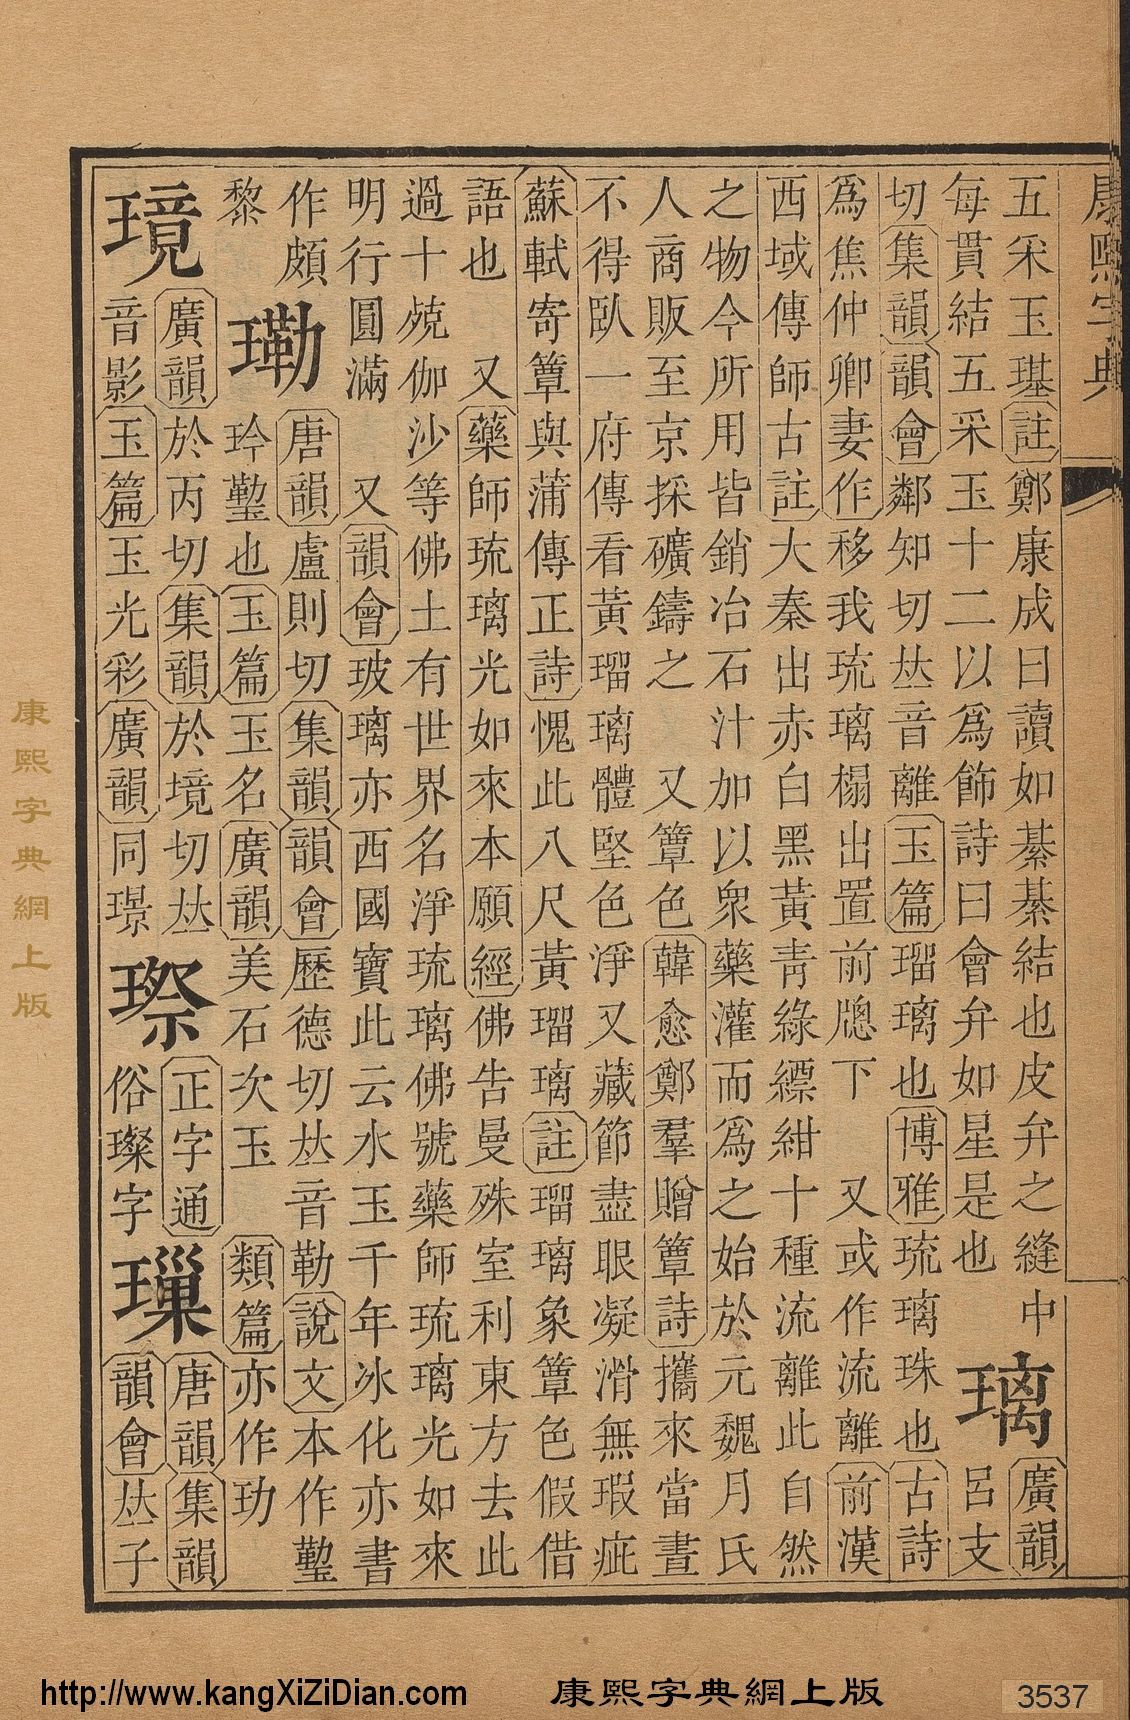 康熙字典
五采玉璂註鄭康成曰讀如綦綦結也皮弁之縫中
每貫結五采玉十二以爲飾詩曰會弁如星是也
璃
廣韻
呂支
切集韻韻會鄰知切𠀤音離玉篇瑠璃也博雅琉璃珠也古詩
爲焦仲卿妻作移我琉璃榻出置前牕下 又或作流離前漢
西域傳師古註大秦出赤白黑黃靑綠縹紺十種流離此自然
之物今所用皆銷冶石汁加以衆藥灌而爲之始於元魏月氏
人商販至京採礦鑄之 又簟色韓愈鄭羣贈簟詩攜來當晝
不得臥一府傳看黃瑠璃體堅色淨又藏節盡眼凝滑無瑕疵
蘇軾寄簟與蒲傳正詩愧此八尺黃瑠璃註瑠璃象簟色假借
語也 又藥師琉璃光如來本願經佛告曼殊室利東方去此
過十兢伽沙等佛土有世界名淨琉璃佛號藥師琉璃光如來
明行圓滿 又韻會玻璃亦西國寶此云水玉千年冰化亦書
作頗
黎
㻎
唐韻盧則切集韻韻會歷德切𠀤音勒說文本作𤪡
玪𤪡也玉篇玉名廣韻美石次玉 類篇亦作玏
璄
廣韻於丙切集韻於境切𠀤
音影玉篇玉光彩廣韻同璟
㻮
正字通
俗璨字
璅
唐韻集韻
韻會𠀤子
康熙字典網上版
http://www.kangXiZiDian.com 康熙字典網上版 3537